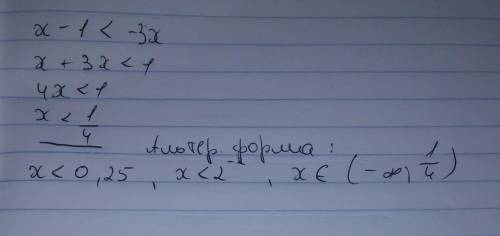 x - 1 < -3x
x + 3x < 1
4x < 1
x < 1/4
Альтер. форма:
x < 0,25 , x < 2⁻ , x ∈ (-∞, 1/4)